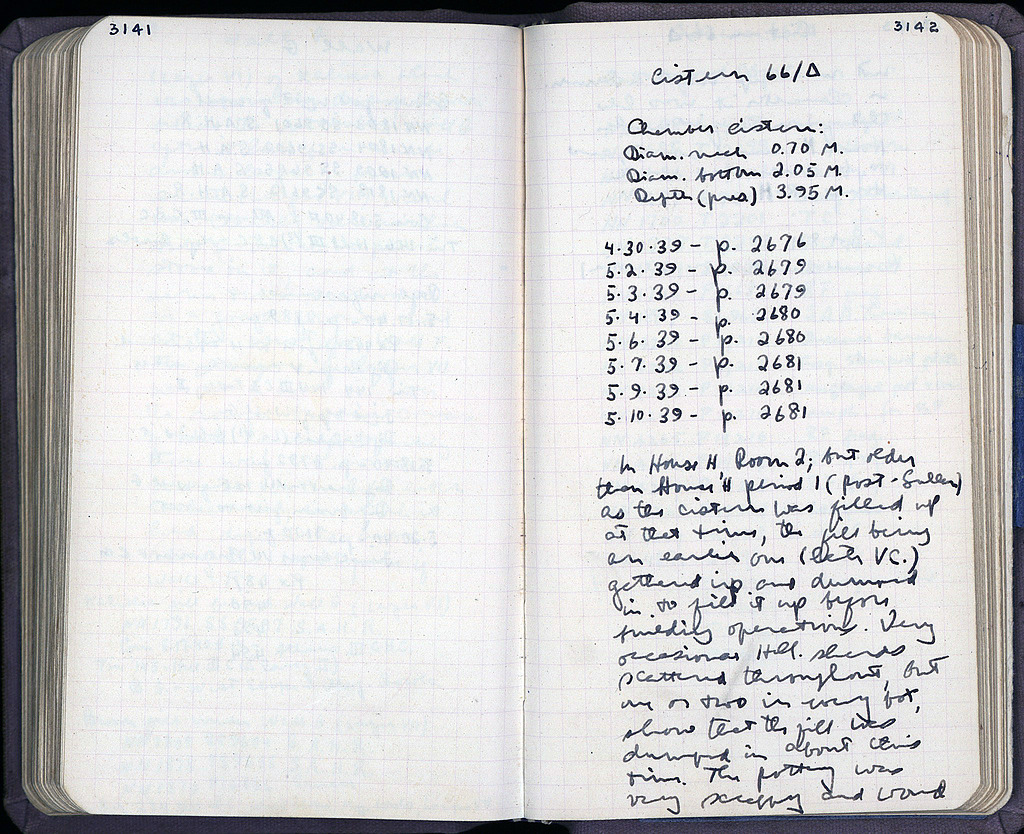 3141
3142
Cistern 66/Δ
Chamber cistern:
Diam. neck 0.70 M.
Diam. bottom 2.05 M.
Depth (pres) 3.95 M.
4.30.39 - p. 2676
5.2.39 - p. 2679
5.3.39 - p. 2679
5.4.39 - p. 2680
5.6.39 - p. 2680
5.7.39 - p. 2681
5.9.39 - p. 2681
5.10.39 - p. 2681
In House H, Room 2; but older
than House H period 1 (post-Sullan)
as the cistern was filled up
at that time, the fill being
an earlier one (late V C.)
gathered up and dumped
in to fill it up before
building operations. Very
occasional Hell. sherds
scattered throughout, but
one or two in every box,
show that the fill was
dumped in about this
time. The pottery was
very scrappy and would